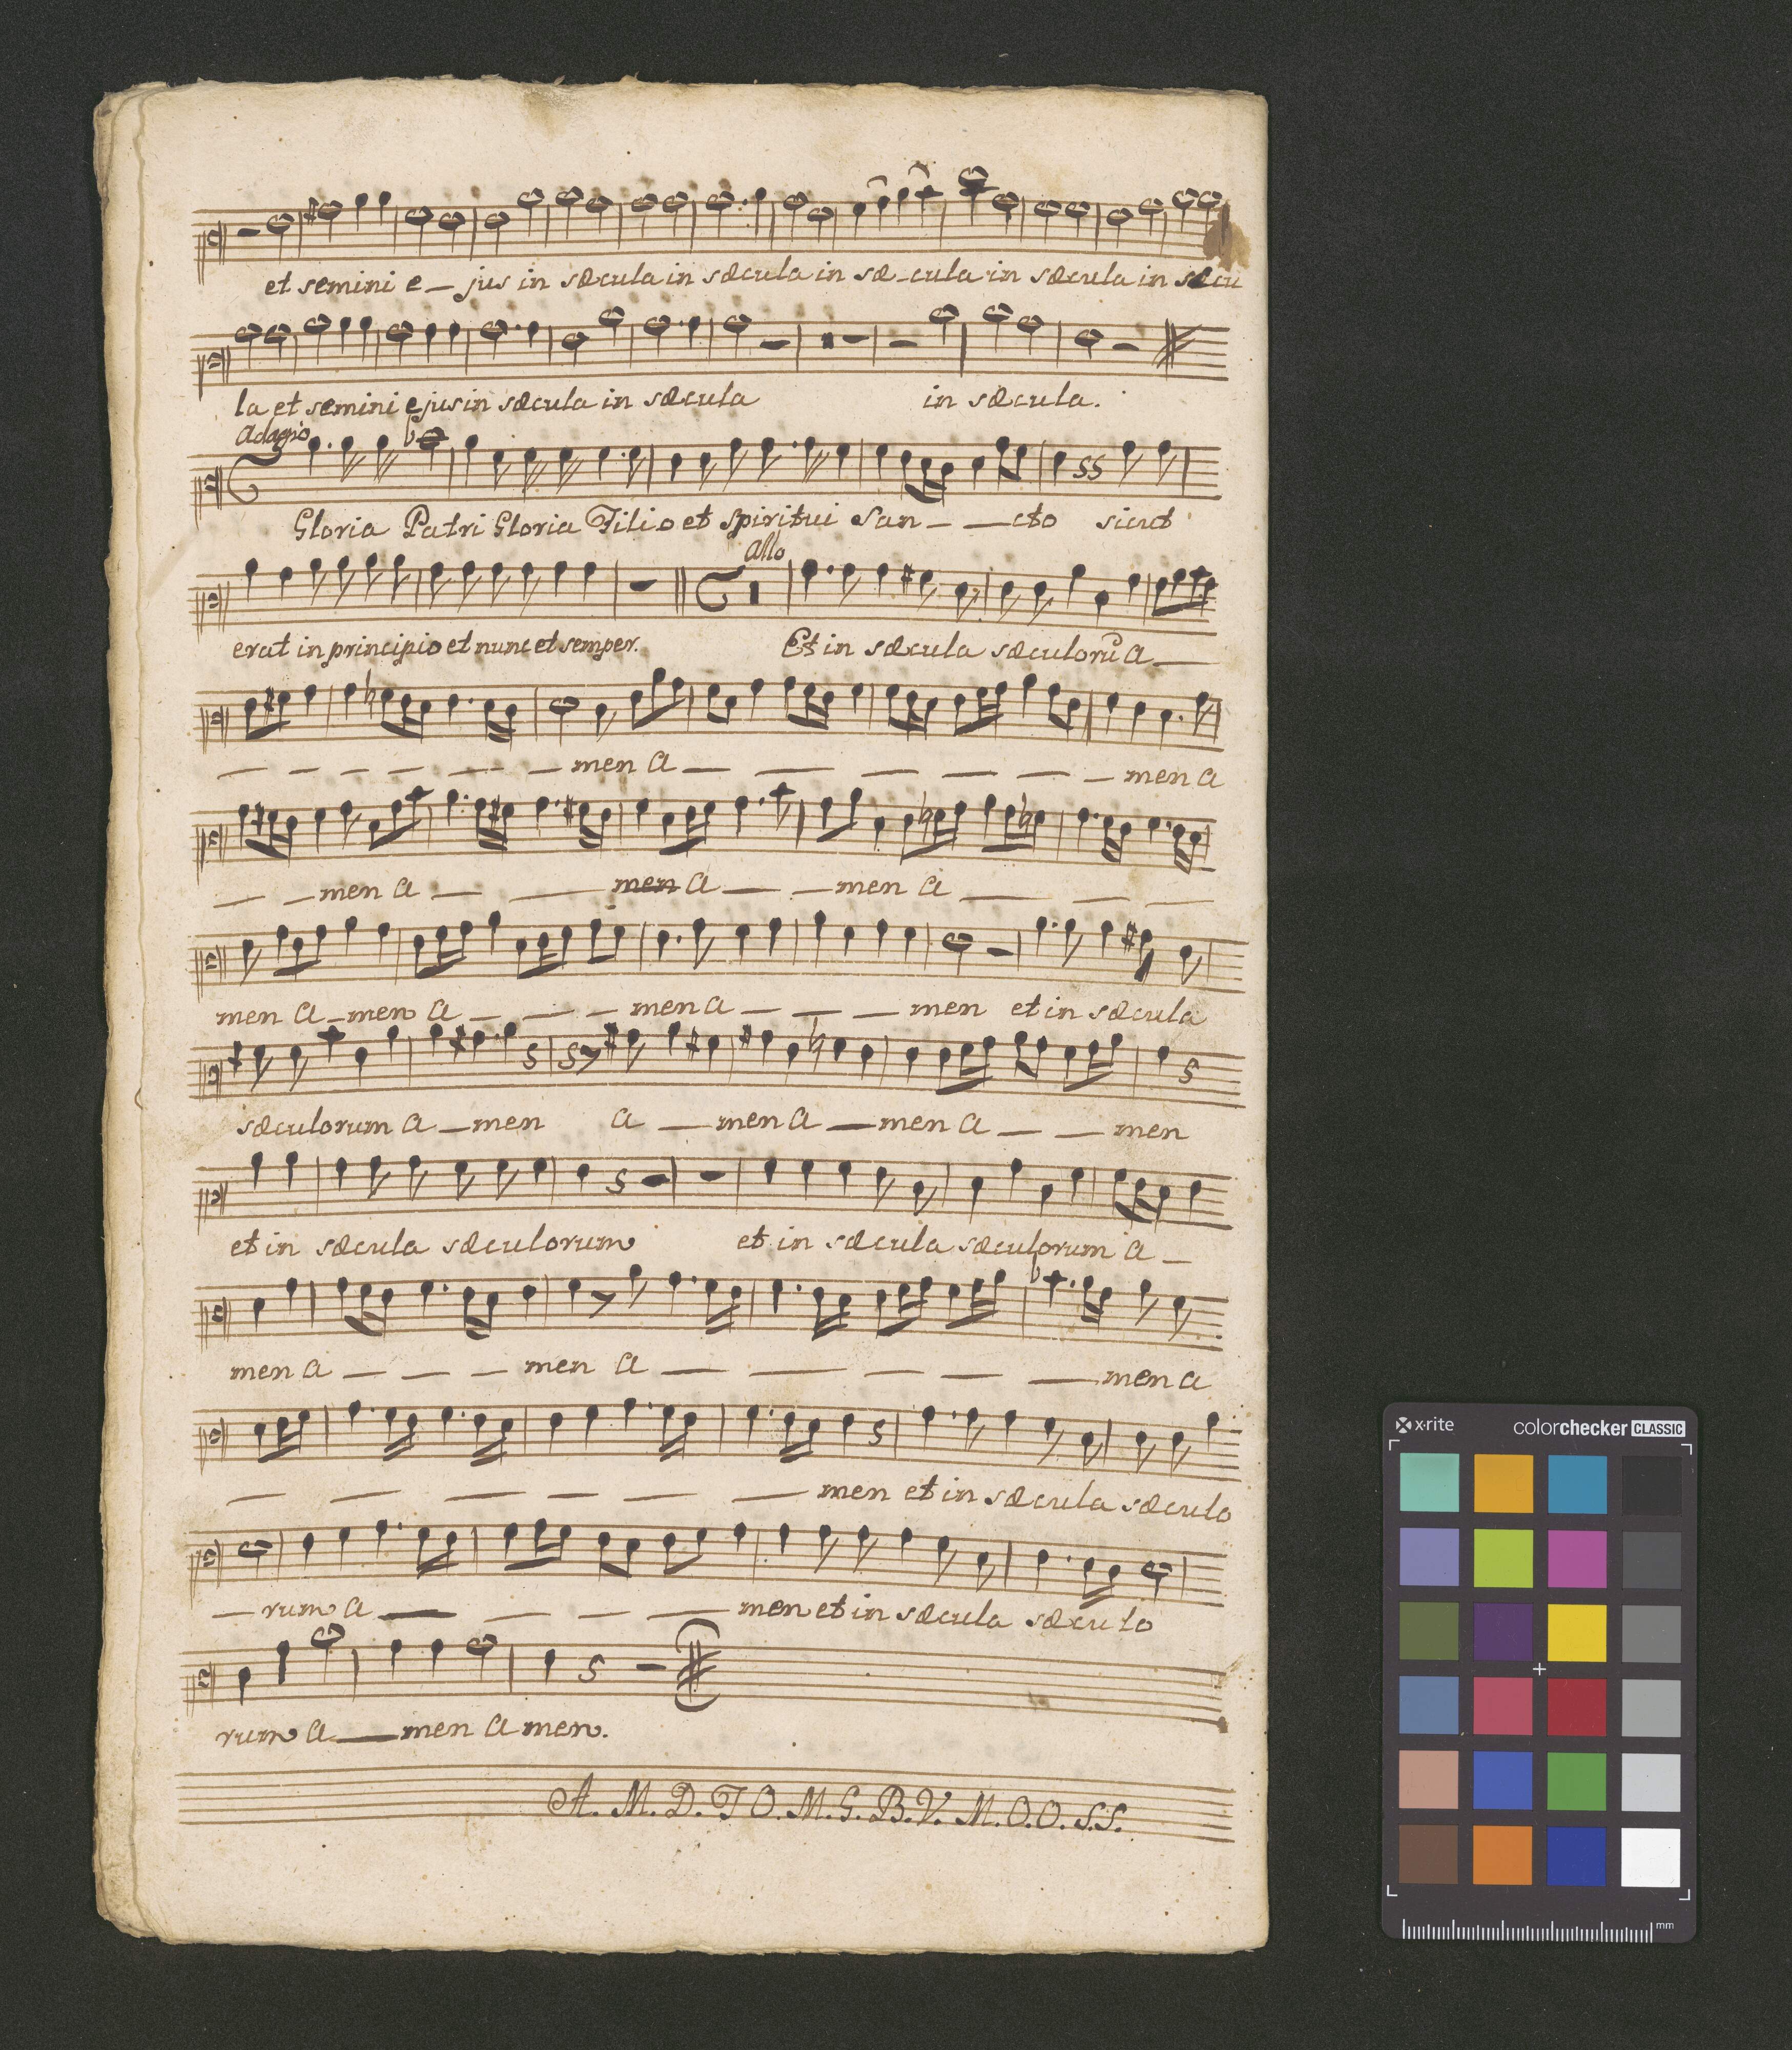 et semini e - jus in sæcula in sæcula in sæ - cula in sæcula in sæcu
la et semini ejus in sæcula in sæcula in sæcula.
Adagio
Gloria Patri Gloria Filio et Spiritui San - - cto sicut
Allo
erat in principio et nunc et semper. Et in sæcula sæculorũ A -
- - - - - - men A - - - - - - men A
- - men A - - men A - - men A - - -
men A - men A - - - men A - - - men et in sæcula
sæculorum A - men A - men A - men A - - men
et in sæcula sæculorum et in sæcula sæculorum A -
men A - - - men A - - - - - men A
- - - - - - men et in sæcula sæculo
- rum A - - - - men et in sæcula sæculo
rum A - men A men.
A. M. D. T O. M. G. B. V. M. O. O. S.S.
x·rite colorchecker CLASSIC
mm